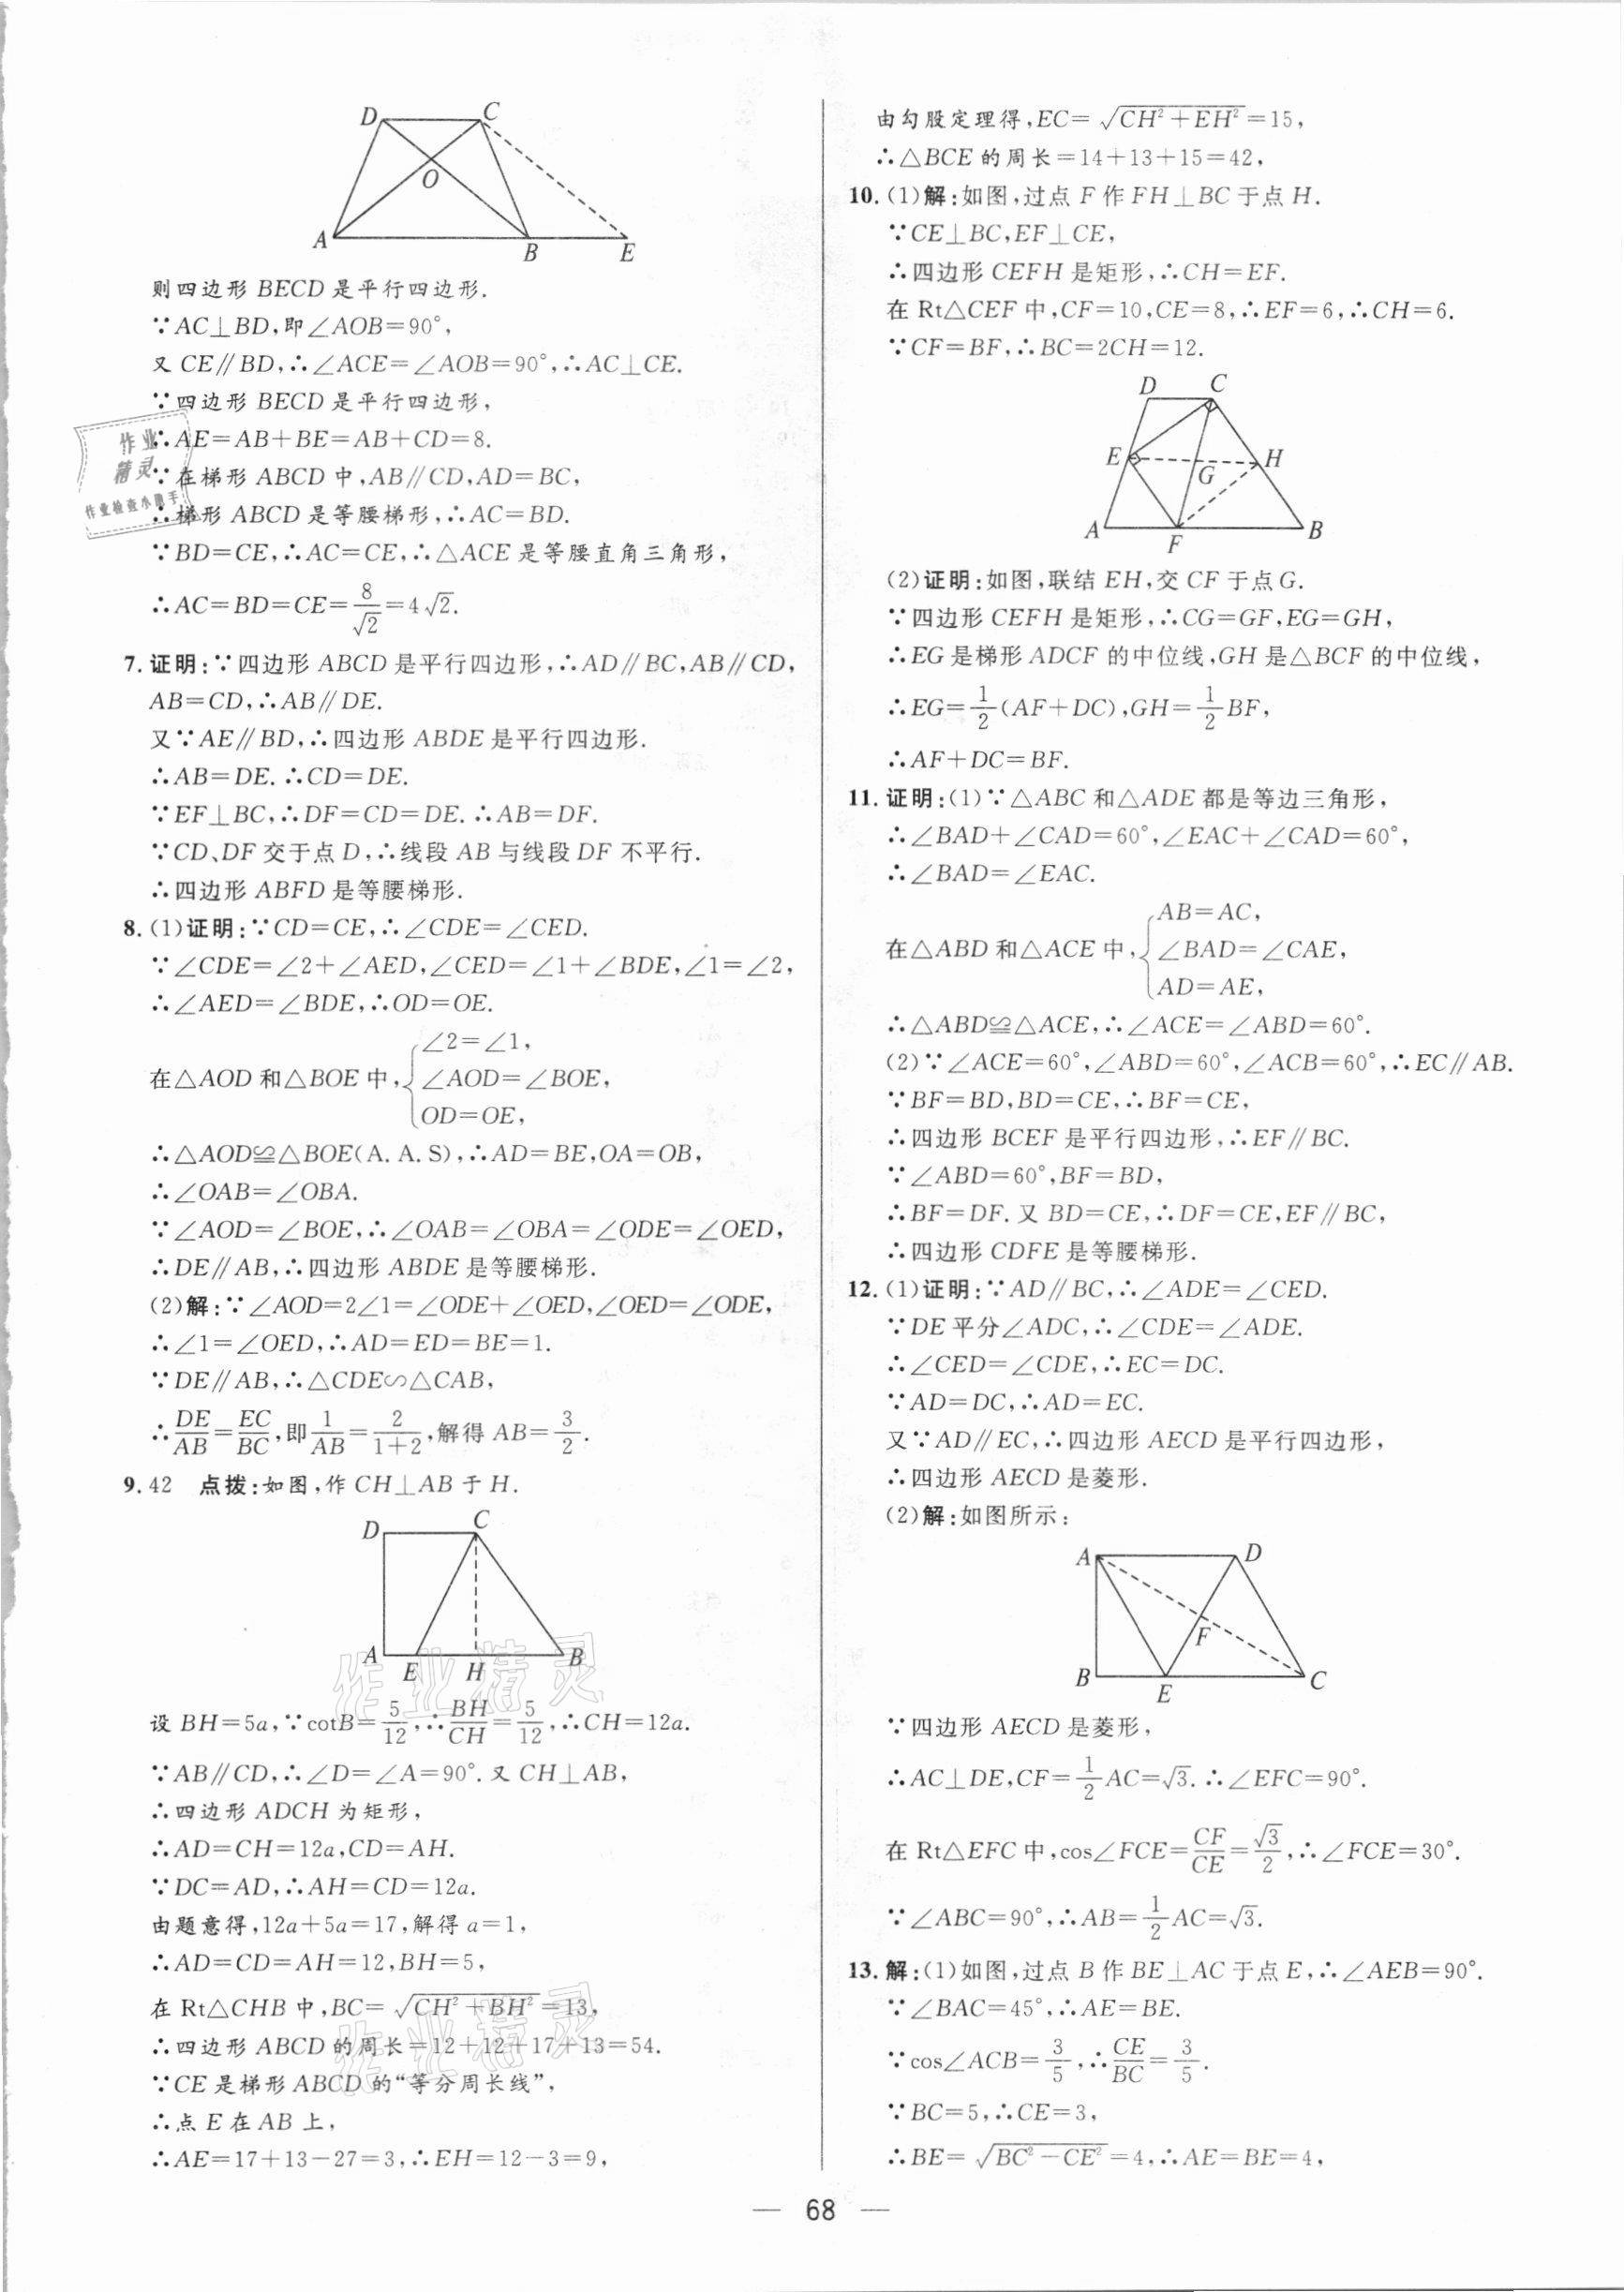 D C
O
A B E
则四边形 BECD 是平行四边形.
∵AC⊥BD,即∠AOB=90°,
又 CE∥BD,∴∠ACE=∠AOB=90°,∴AC⊥CE.
∵四边形 BECD 是平行四边形,
∴AE=AB+BE=AB+CD=8.
∵在梯形 ABCD 中,AB∥CD,AD=BC,
∴梯形 ABCD 是等腰梯形,∴AC=BD.
∵BD=CE,∴AC=CE,∴△ACE 是等腰直角三角形,
∴AC=BD=CE=8/√2=4√2.
作业
精灵
作业检查小助手
7. 证明:∵四边形 ABCD 是平行四边形,∴AD∥BC,AB∥CD,
AB=CD,∴AB∥DE.
又∵AE∥BD,∴四边形 ABDE 是平行四边形.
∴AB=DE.∴CD=DE.
∵EF⊥BC,∴DF=CD=DE.∴AB=DF.
∵CD、DF 交于点 D,∴线段 AB 与线段 DF 不平行.
∴四边形 ABFD 是等腰梯形.
8. (1)证明:∵CD=CE,∴∠CDE=∠CED.
∵∠CDE=∠2+∠AED,∠CED=∠1+∠BDE,∠1=∠2,
∴∠AED=∠BDE,∴OD=OE.
∠2=∠1,
在△AOD 和△BOE 中,{∠AOD=∠BOE,
OD=OE,
∴△AOD≌△BOE(A. A. S),∴AD=BE,OA=OB,
∴∠OAB=∠OBA.
∵∠AOD=∠BOE,∴∠OAB=∠OBA=∠ODE=∠OED,
∴DE∥AB,∴四边形 ABDE 是等腰梯形.
(2)解:∵∠AOD=2∠1=∠ODE+∠OED,∠OED=∠ODE,
∴∠1=∠OED,∴AD=ED=BE=1.
∵DE∥AB,∴△CDE∽△CAB,
∴DE/AB=EC/BC,即1/AB=2/(1+2),解得 AB=3/2.
9. 42 点拨:如图,作 CH⊥AB 于 H.
D C
A E H B
设 BH=5a,∵cotB=5/12,∴BH/CH=5/12,∴CH=12a.
∵AB∥CD,∴∠D=∠A=90°.又 CH⊥AB,
∴四边形 ADCH 为矩形,
∴AD=CH=12a,CD=AH.
∵DC=AD,∴AH=CD=12a.
由题意得,12a+5a=17,解得 a=1,
∴AD=CD=AH=12,BH=5,
在 Rt△CHB 中,BC=√(CH²+BH²)=13,
∴四边形 ABCD 的周长=12+12+17+13=54.
∵CE 是梯形 ABCD 的“等分周长线”,
∴点 E 在 AB 上,
∴AE=17+13-27=3,∴EH=12-3=9,
作业精灵
作业精灵
由勾股定理得,EC=√(CH²+EH²)=15,
∴△BCE 的周长=14+13+15=42,
10. (1)解:如图,过点 F 作 FH⊥BC 于点 H.
∵CE⊥BC,EF⊥CE,
∴四边形 CEFH 是矩形,∴CH=EF.
在 Rt△CEF 中,CF=10,CE=8,∴EF=6,∴CH=6.
∵CF=BF,∴BC=2CH=12.
D C
E G H
A F B
(2)证明:如图,联结 EH,交 CF 于点 G.
∵四边形 CEFH 是矩形,∴CG=GF,EG=GH,
∴EG 是梯形 ADCF 的中位线,GH 是△BCF 的中位线,
∴EG=1/2(AF+DC),GH=1/2BF,
∴AF+DC=BF.
11. 证明:(1)∵△ABC 和△ADE 都是等边三角形,
∴∠BAD+∠CAD=60°,∠EAC+∠CAD=60°,
∴∠BAD=∠EAC.
AB=AC,
在△ABD 和△ACE 中,{∠BAD=∠CAE,
AD=AE,
∴△ABD≌△ACE,∴∠ACE=∠ABD=60°.
(2)∵∠ACE=60°,∠ABD=60°,∠ACB=60°,∴EC∥AB.
∵BF=BD,BD=CE,∴BF=CE,
∴四边形 BCEF 是平行四边形,∴EF∥BC.
∵∠ABD=60°,BF=BD,
∴BF=DF.又 BD=CE,∴DF=CE,EF∥BC,
∴四边形 CDFE 是等腰梯形.
12. (1)证明:∵AD∥BC,∴∠ADE=∠CED.
∵DE 平分∠ADC,∴∠CDE=∠ADE.
∴∠CED=∠CDE,∴EC=DC.
∵AD=DC,∴AD=EC.
又∵AD∥EC,∴四边形 AECD 是平行四边形,
∴四边形 AECD 是菱形.
(2)解:如图所示:
A D
F
B E C
∵四边形 AECD 是菱形,
∴AC⊥DE,CF=1/2AC=√3.∴∠EFC=90°.
在 Rt△EFC 中,cos∠FCE=CF/CE=√3/2,∴∠FCE=30°.
∵∠ABC=90°,∴AB=1/2AC=√3.
13. 解:(1)如图,过点 B 作 BE⊥AC 于点 E,∴∠AEB=90°.
∵∠BAC=45°,∴AE=BE.
∵cos∠ACB=3/5,∴CE/BC=3/5.
∵BC=5,∴CE=3,
∴BE=√(BC²-CE²)=4,∴AE=BE=4,
— 68 —